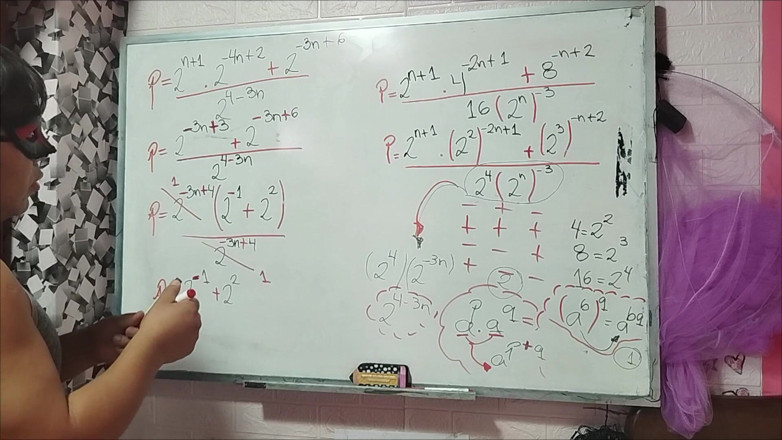 P = 2^{n+1} · 2^{-4n+2} + 2^{-3n+6}
2^{4-3n}
P = 2^{-3n+3} + 2^{-3n+6}
2^{4-3n}
1
P = 2^{-3n+4} (2^{-1} + 2^{2})
2^{-3n+4}
1
2^{-1} + 2^{2}
P = 2^{n+1} · 4^{-2n+1} + 8^{-n+2}
16 (2^{n})^{-3}
P = 2^{n+1} · (2^{2})^{-2n+1} + (2^{3})^{-n+2}
2^{4} (2^{n})^{-3}
- + -
+ + +
- - +
+ - -
4 = 2^{2}
8 = 2^{3}
16 = 2^{4}
(2^{4}) (2^{-3n})
2^{4-3n}
2
a^{p} · a^{q} =
a^{p+q}
(a^{b})^{q} = a^{bq}
1